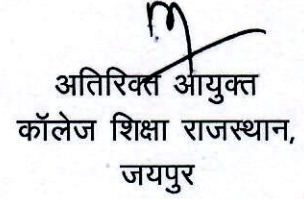 अतिरिक्त आयुक्त
कॉलेज शिक्षा राजस्थान,
जयपुर